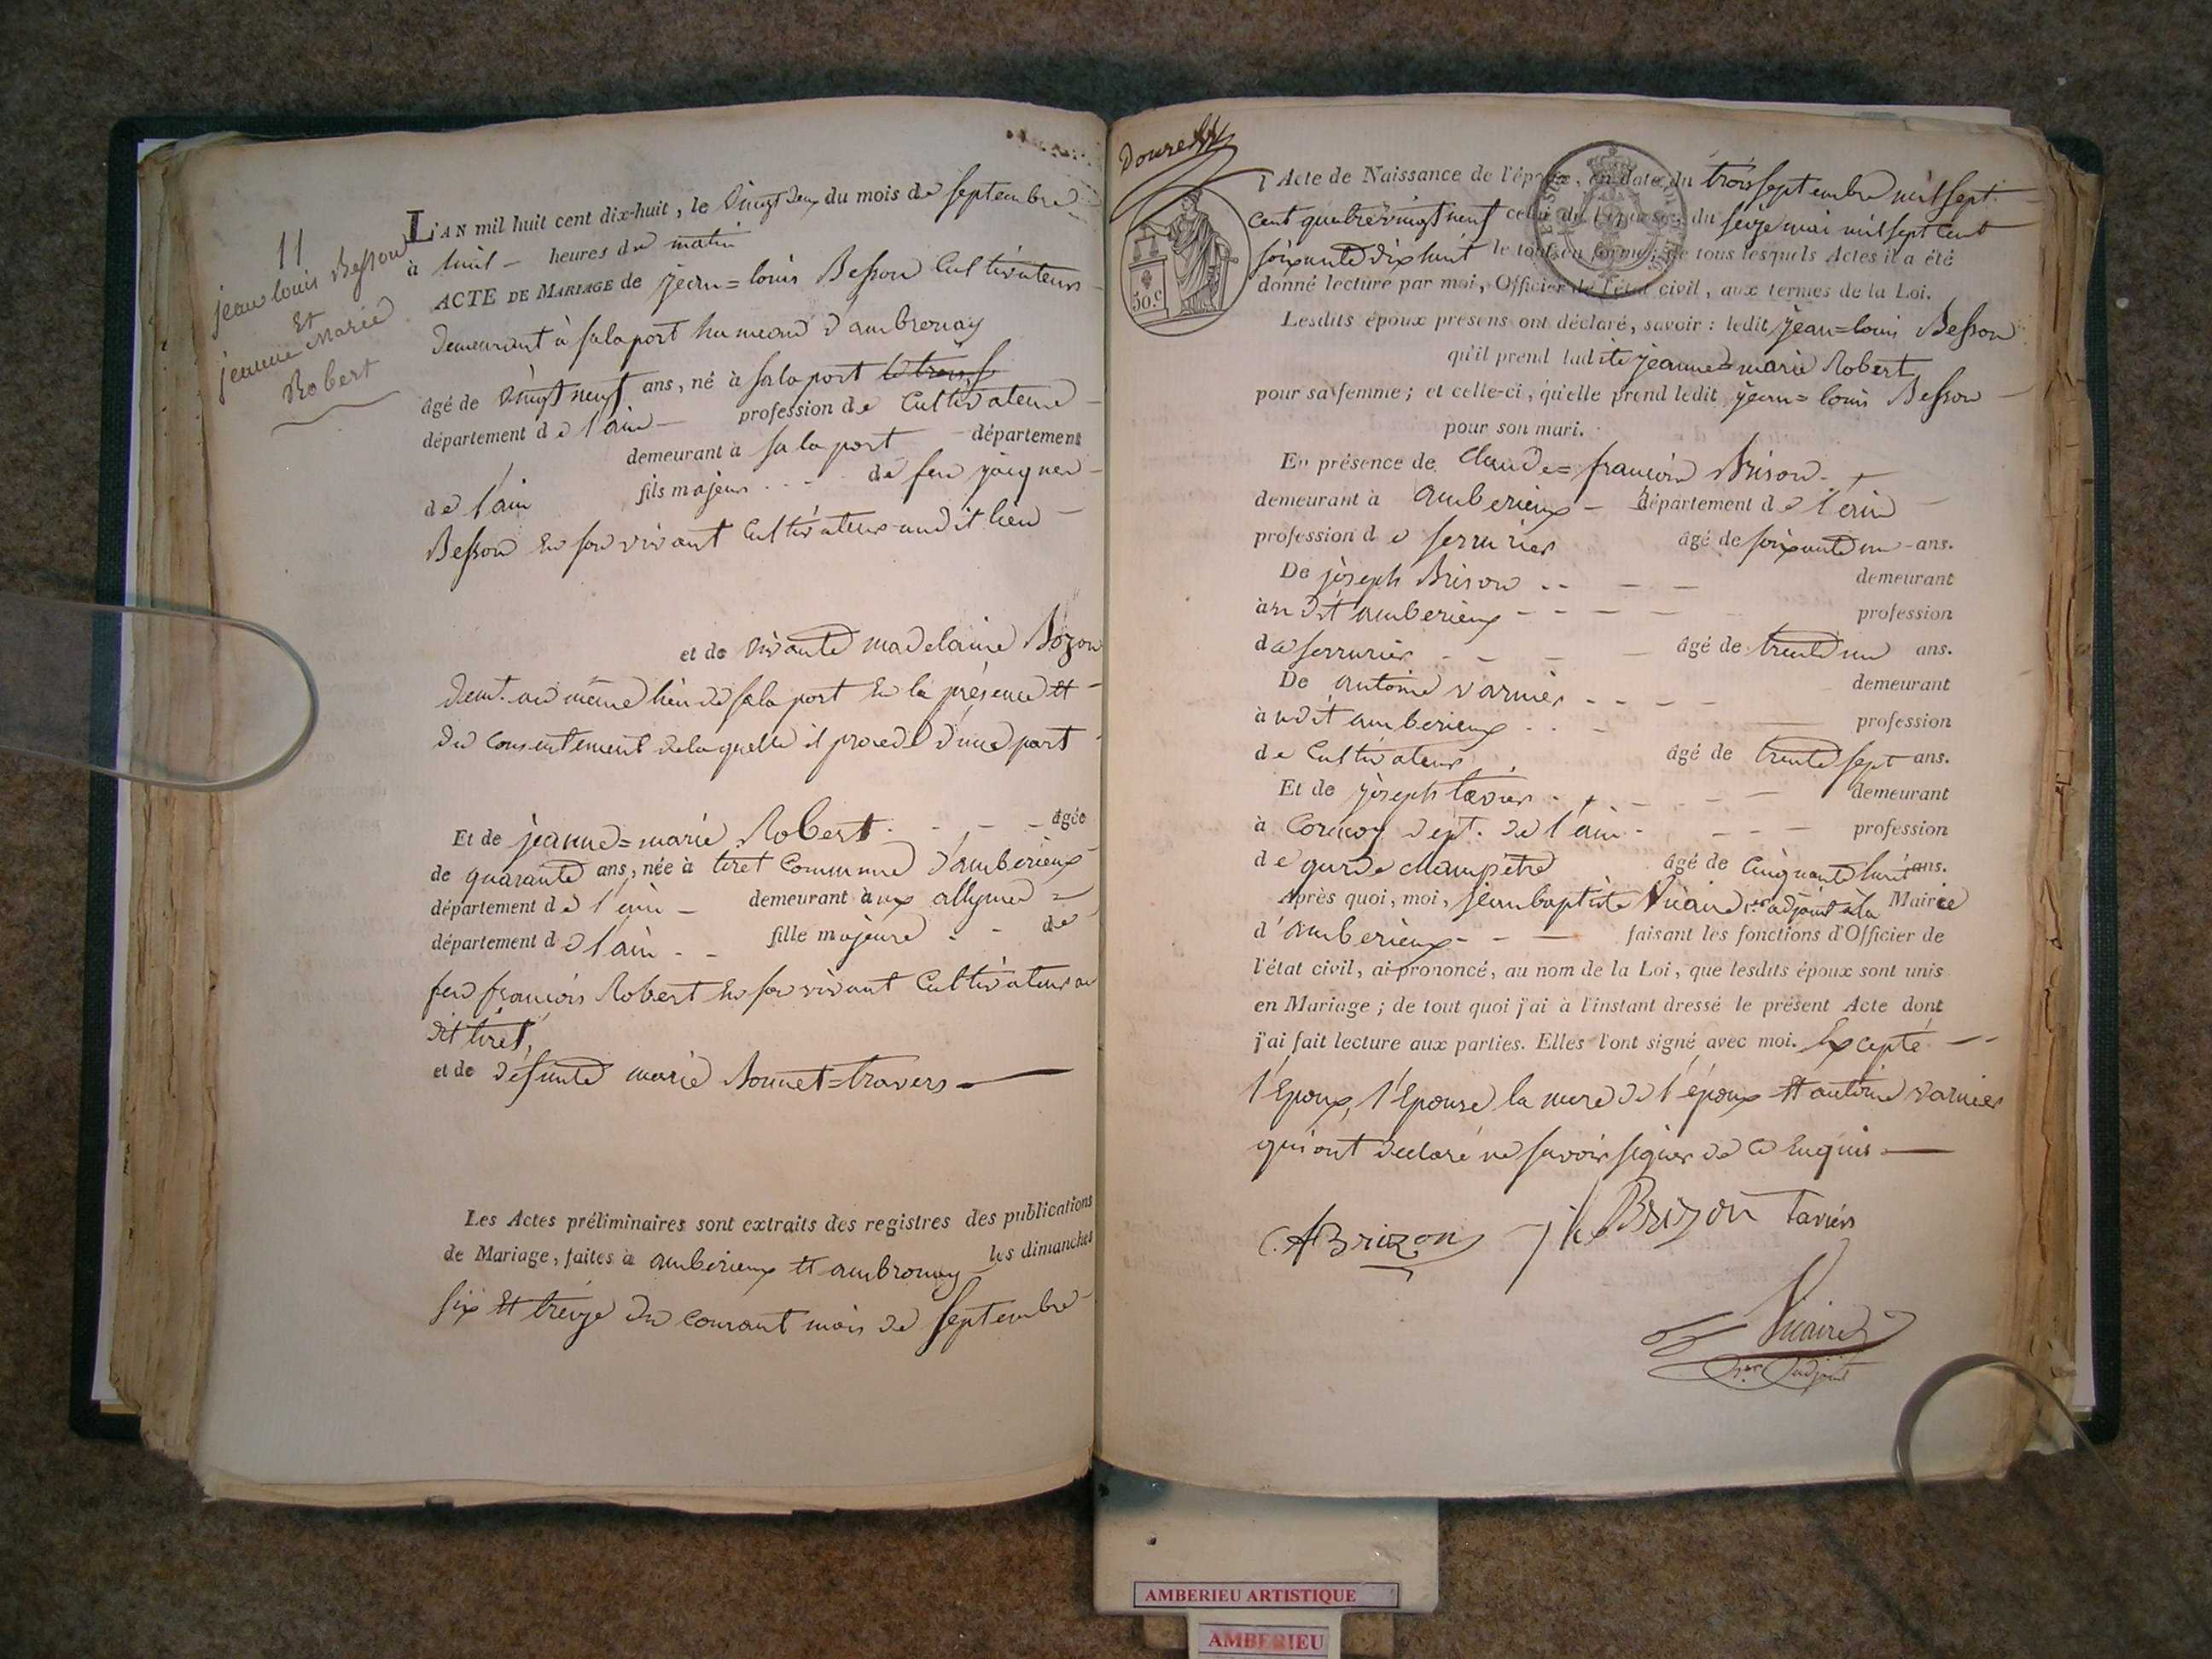 11
jean louis Besson
Et
jeanne Marie
Robert
L'AN mil huit cent dix-huit, le vingt deux du mois de septembre
à huit - heures du matin
ACTE DE MARIAGE de jean=louis Besson Cultivateur
demeurant à salaport hameau d'ambronay
âgé de vingt neuf ans, né à salaport
département de l'ain - profession de Cultivateur
demeurant à salaport département
de l'ain fils majeur de feu jacques
Besson en son vivant Cultivateur audit lieu
et de vivante madelaine Bozon
demt. au même lieu de salaport en la présence et
du consentement de laquelle il procede d'une part
Et de jeanne=marie Robert. - - - âgée
de quarante ans, née à tiret Commune d'amberieux
département de l'ain - demeurant aux allymes
département de l'ain - - fille majeure - - de
feu françois Robert en son vivant Cultivateur au
dit tiret,
et de défunte marie Bonnet=travers
Les Actes préliminaires sont extraits des registres des publications
de Mariage, faites à amberieux et ambronay les dimanches
six et treize du courant mois de septembre
Douze
50.c
l'Acte de Naissance de l'époux, en date du trois septembre mil sept
cent quatrevingt neuf celui de l'épouse, du seize mai mil sept cent
soixante dix huit le tout en forme; de tous lesquels Actes il a été
donné lecture par moi, Officier de l'état civil, aux termes de la Loi.
Lesdits époux présens ont déclaré, savoir : ledit jean=louis Besson
qu'il prend ladite jeanne=marie Robert
pour sa femme ; et celle-ci, qu'elle prend ledit jean=louis Besson
pour son mari.
En présence de Claude=françois Brison
demeurant à amberieux - département de l'ain
profession de serrurier âgé de soixante un ans.
De joseph Brison demeurant
à audit amberieux - - - - profession
de serrurier - - - âgé de trente un ans.
De antoine varnier demeurant
à udit amberieux profession
de Cultivateur âgé de trente sept ans.
Et de joseph tavier demeurant
à Cormoz dept. de l'ain - profession
de garde champêtre âgé de cinquante huit ans.
Après quoi, moi, jean baptiste Vicaire 1er adjoint à la Mairie
d'amberieux - - faisant les fonctions d'Officier de
l'état civil, ai prononcé, au nom de la Loi, que lesdits époux sont unis
en Mariage ; de tout quoi j'ai à l'instant dressé le présent Acte dont
j'ai fait lecture aux parties. Elles l'ont signé avec moi. Excepté
l'Epoux, l'Epouse la mere de l'époux et antoine varnier
qui ont déclaré ne savoir signer de ce Enquis
C. f Brizon j h Brizon taviér
Vicaire
1er adjoint
AMBERIEU ARTISTIQUE
AMBERIEU